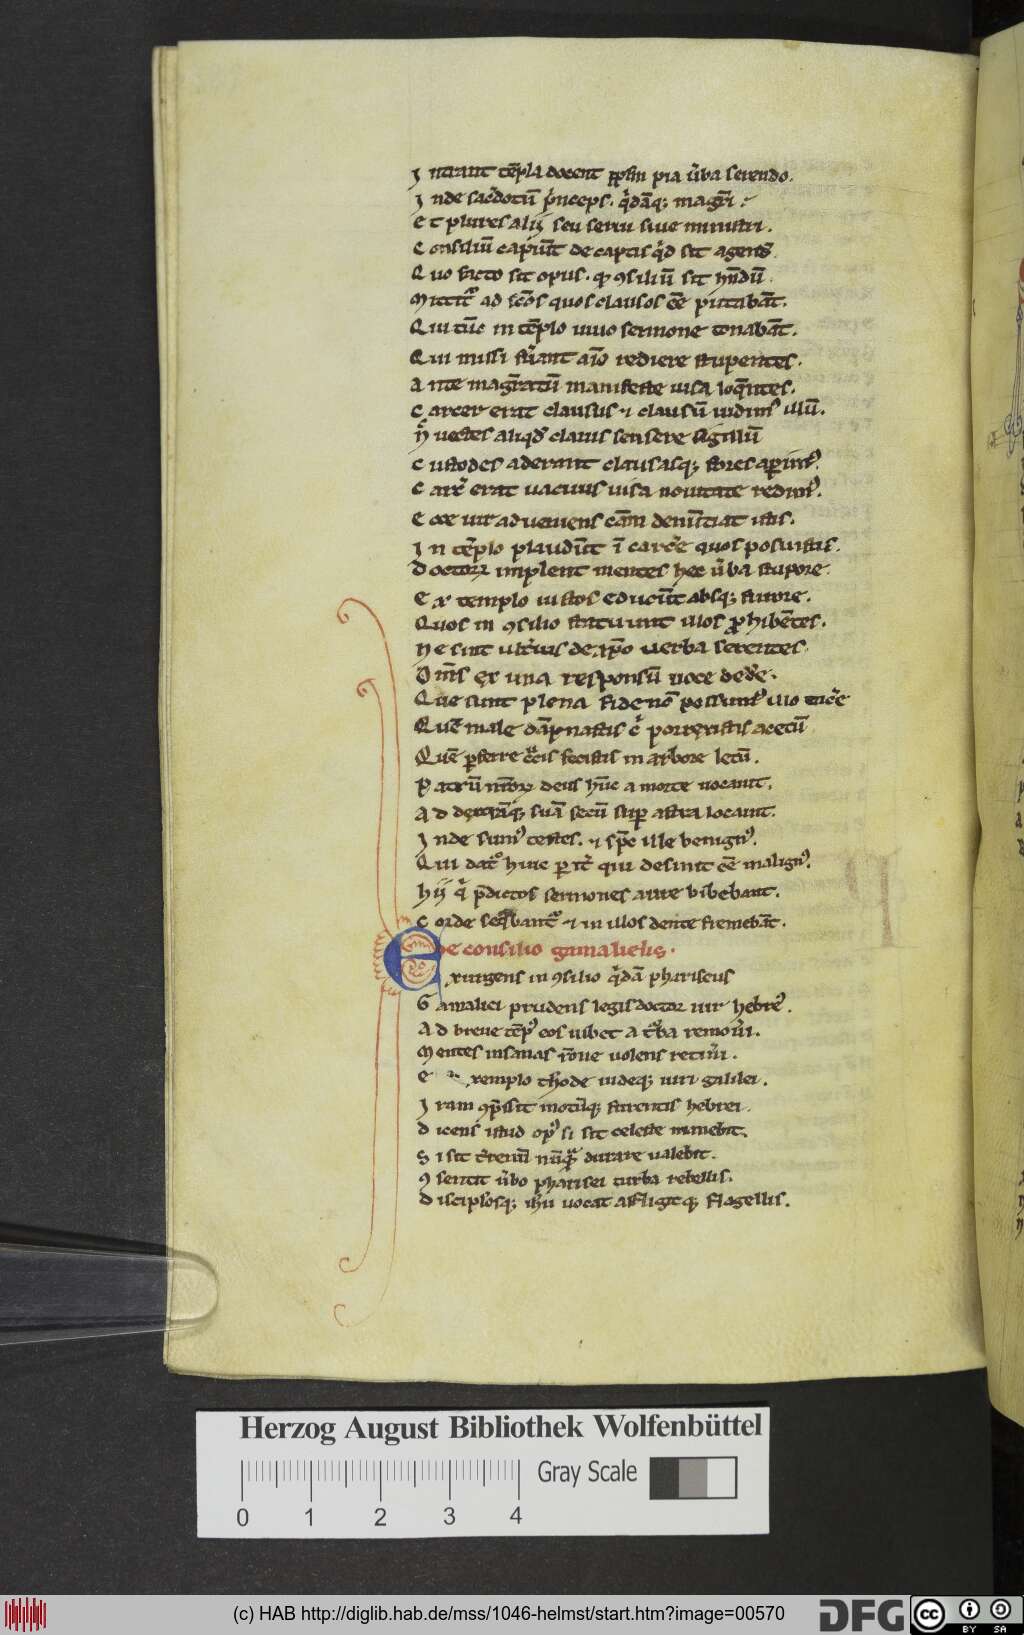 Intrant te̅pla docent p̱p̱lm pia u̓ba serendo.
Inde sac̓dotu̅ p̓nceps. q̓da̅q; mag̅ri :
Et plures alij seu serui siue ministri.
Consiliu̅ capiu̅t de captis q̓d sit agend̅
Quo facto sit opus. ꝙ ꝯsiliu̅ sit
Mittit᷑ ad sc̅os quos clausos e̅e putaba̅t.
Qui tu̅c in te̅plo uiuo sermone tonaba̅t.
Qui missi fu̓ant a̅io rediere stupentes.
Ante mag̅ratu̅ manifeste uisa loq̅ntes.
Carcer erat clausus ⁊ clausu̅ uidim᷒ illu̅.
N̅ uectes aliq̓d clauis sensere sigillu̅
Custodes aderant clausasq; fores aperim᷒.
Carc̓ erat uacuus uisa nouitate redim᷒.
Ecce uir adueniens ca̅m denu̅tiat istis.
In te̅plo plaudu̅t i̅ carc̓e quos posuistis.
Doctoꝝ implent mentes hec u̓ba stupore.
Ex templo iustos educu̅t absq; furore.
Quos in ꝯsilio statuunt illos ꝓhibe̅tes.
Ne sint ult̓ius de xp̅o uerba serentes.
Om̅s ex una responsu̅ uoce dede̓.
Que sunt plena fide no̅ possum᷒ illo tac̓e
Que̅ male da̅pnastis c̓ porrexistis acetu̅
Que̅ ꝑferre c᷑cis fecistis in arbore letu̅.
Patru̅ nr̅oꝝ deus hu̅c a morte uocauit.
Ad dext̓a̅q; sua̅ secu̅ suꝑ astra locauit.
Inde sum᷒ testes. ⁊ sp̅c ille benign᷒.
Qui dat᷑ huic ꝑ it̓ qui desinit e̅e malign᷒.
Hij q̓ p̅dictos sermones aure bibebant.
Corde secabant᷑ ⁊ in illos dente fremeba̅t.
De consilio gamalielis.
Exurgens in ꝯsilio q̓da̅ phariseus
Gamaliel prudens legis doctor uir hebre᷒.
Ad breue te̅p᷒ eos iubet a t᷑ba remou̓i.
Mentes insanas r̅one uolens retin̓i.
Exemplo theode iudeq; uiri galilei.
Iram ꝯp̅ssit motu̅q; furentis hebrei.
Dicens istud op᷒ si sit celeste manebit.
Si sit t̓renu̅ nu̅q᷑ durare ualebit.
ꝯsentit u̓bo pharisei turba rebellis.
Discip̓losq; ih̅u uocat affligitq; flagellis.
Herzog August Bibliothek Wolfenbüttel
Gray Scale
0 1 2 3 4
(c) HAB http://diglib.hab.de/mss/1046-helmst/start.htm?image=00570
DFG
cc BY SA